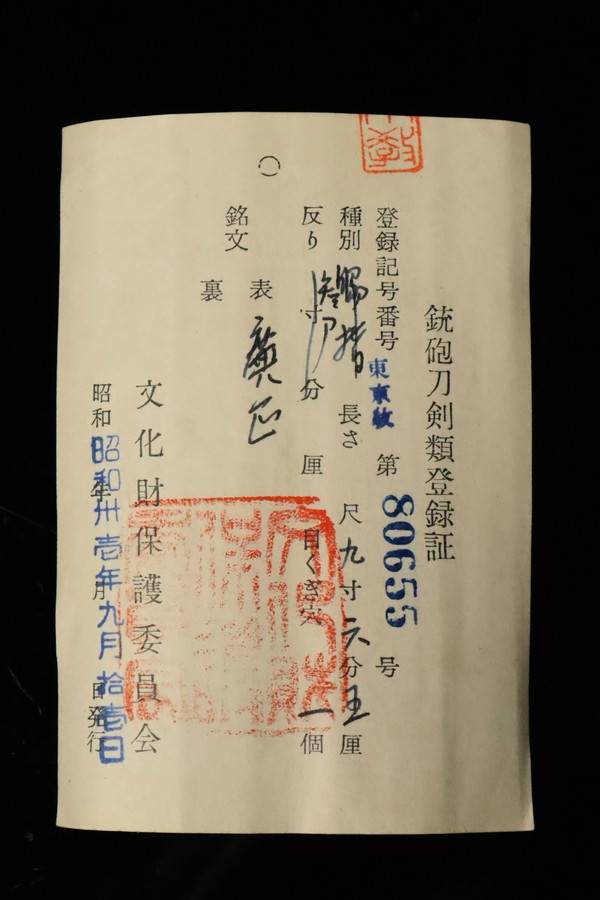 銃砲刀剣類登録証
登録記号番号 東京教 第 80655 号
種別 脇指 長さ 尺九寸六分五厘
反り 寸 分 厘 目くぎ穴 一個
銘文 表 廣正
裏
文化財保護委員会
昭和 年 月 日発行
昭和卅壱年九月拾壱日